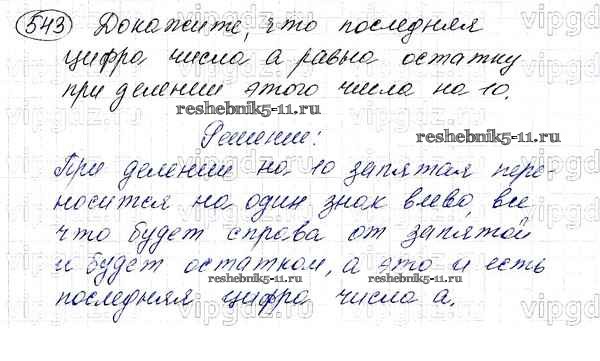 543 Докажите, что последняя
цифра числа а равна остатку
при делении этого числа на 10.
reshebnik5-11.ru
reshebnik5-11.ru
Решение:
При делении на 10 запятая пере-
носится на один знак влево, все
что будет справа от запятой
и будет остатком, а это и есть
reshebnik5-11.ru
reshebnik5-11.ru
последняя цифра числа а.